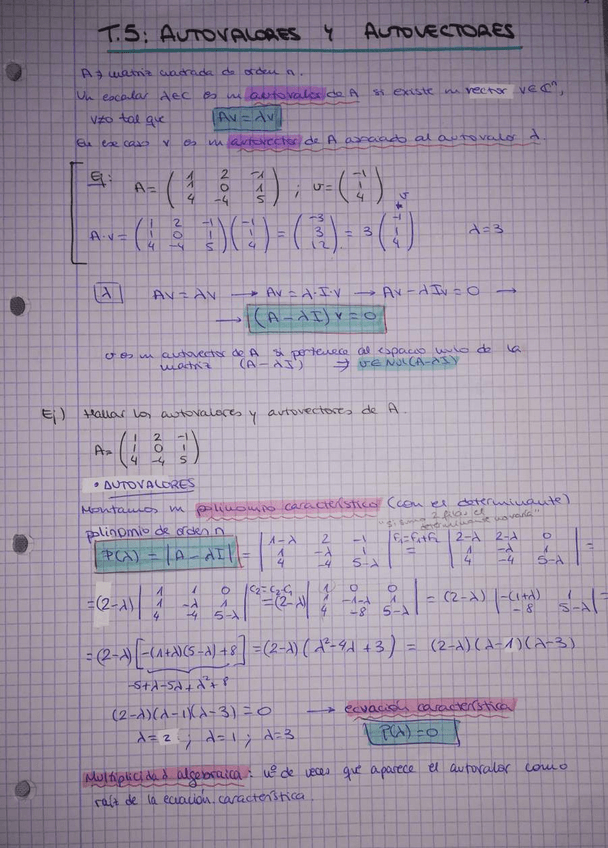 T.5: AUTOVALORES Y AUTOVECTORES
A → matriz cuadrada de orden n.
Un escalar λ∈C es un autovalor de A si existe un vector v∈Cⁿ,
v≠0 tal que Av = λv
En ese caso v es un autovector de A asociado al autovalor λ.
Ej: A = ( 1 2 -1 ; 1 0 1 ; 4 -4 5 ) ; v = ( -1 ; 1 ; 4 )
A·v = ( 1 2 -1 ; 1 0 1 ; 4 -4 5 ) ( -1 ; 1 ; 4 ) = ( -3 ; 3 ; 12 ) = 3 ( -1 ; 1 ; 4 ) v λ=3
λ Av = λv → Av = λ·I·v → Av - λIv = 0 →
→ (A - λI) v = 0
v es un autovector de A si pertenece al espacio nulo de la
matriz (A - λI) ⇒ v∈Nul(A-λI)
Ej) Hallar los autovalores y autovectores de A.
A = ( 1 2 -1 ; 1 0 1 ; 4 -4 5 )
• AUTOVALORES
Montamos un polinomio característico (con el determinante)
polinomio de orden n
P(λ) = |A - λI| = | 1-λ 2 -1 ; 1 -λ 1 ; 4 -4 5-λ | F1=F1+F2 = | 2-λ 2-λ 0 ; 1 -λ 1 ; 4 -4 5-λ | =
= (2-λ) | 1 1 0 ; 1 -λ 1 ; 4 -4 5-λ | C2=C2-C1 = (2-λ) | 1 0 0 ; 1 -1-λ 1 ; 4 -8 5-λ | = (2-λ) | -(1+λ) 1 ; -8 5-λ | =
= (2-λ) [-(1+λ)(5-λ)+8] = (2-λ)(λ²-4λ+3) = (2-λ)(λ-1)(λ-3)
-5+λ-5λ+λ²+8
(2-λ)(λ-1)(λ-3) = 0 → ecuación característica
λ = 2 ; λ = 1 ; λ = 3 P(λ) = 0
Multiplicidad algebraica: nº de veces que aparece el autovalor como
raíz de la ecuación característica.